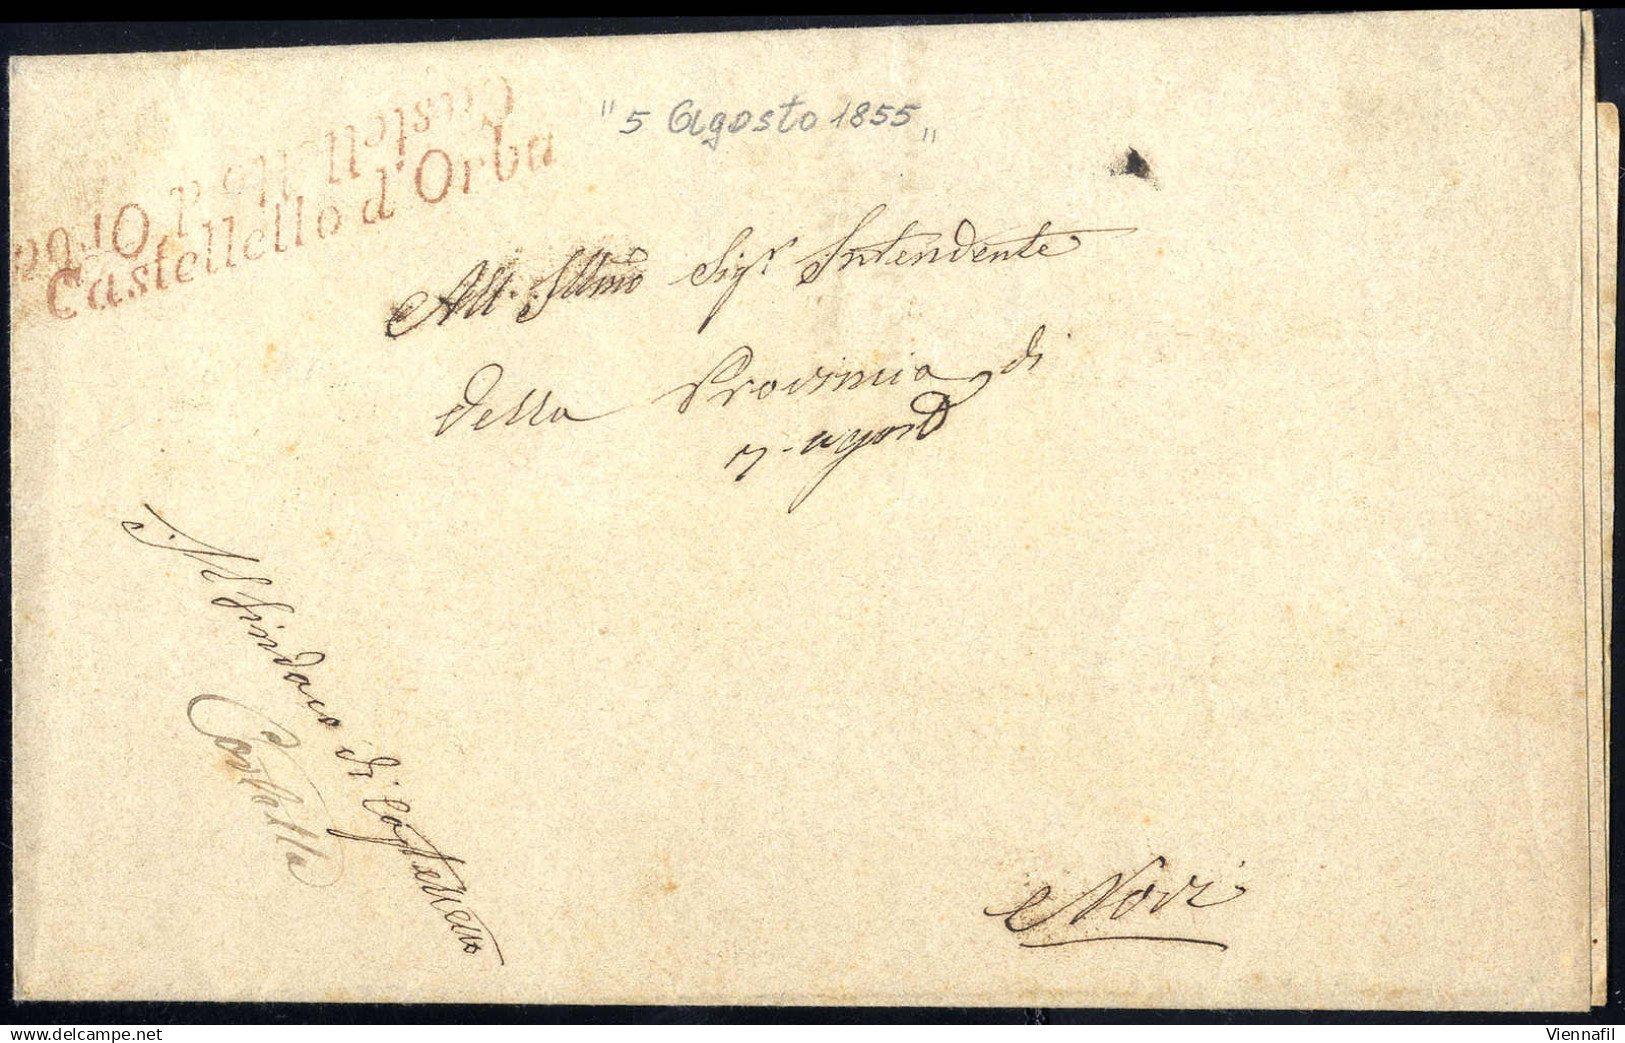 Castelletto d'Orba
Castelletto d'Orba
"5 Agosto 1855"
All. Illmo Sigr Intendente
della Provincia di
7. agosto
Il Sindaco di Castelletto
Novi
Viennafil